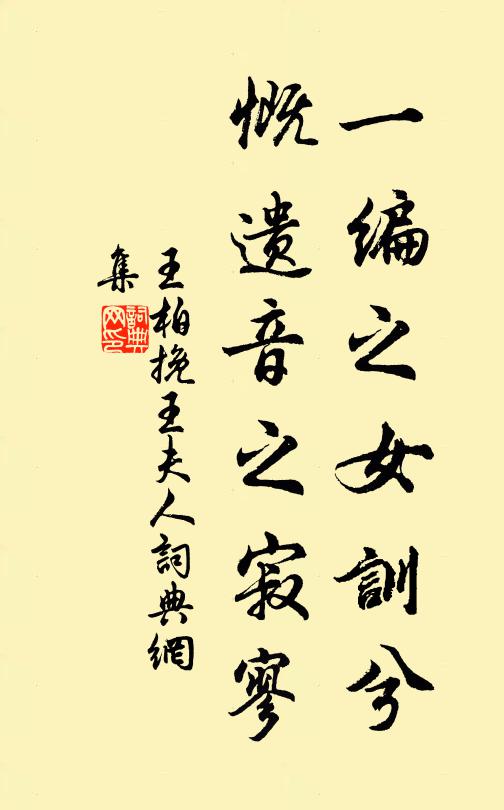 一编之女訓兮
慨遗音之寂寥
王柏挽王夫人詞典網
集
詞典网印